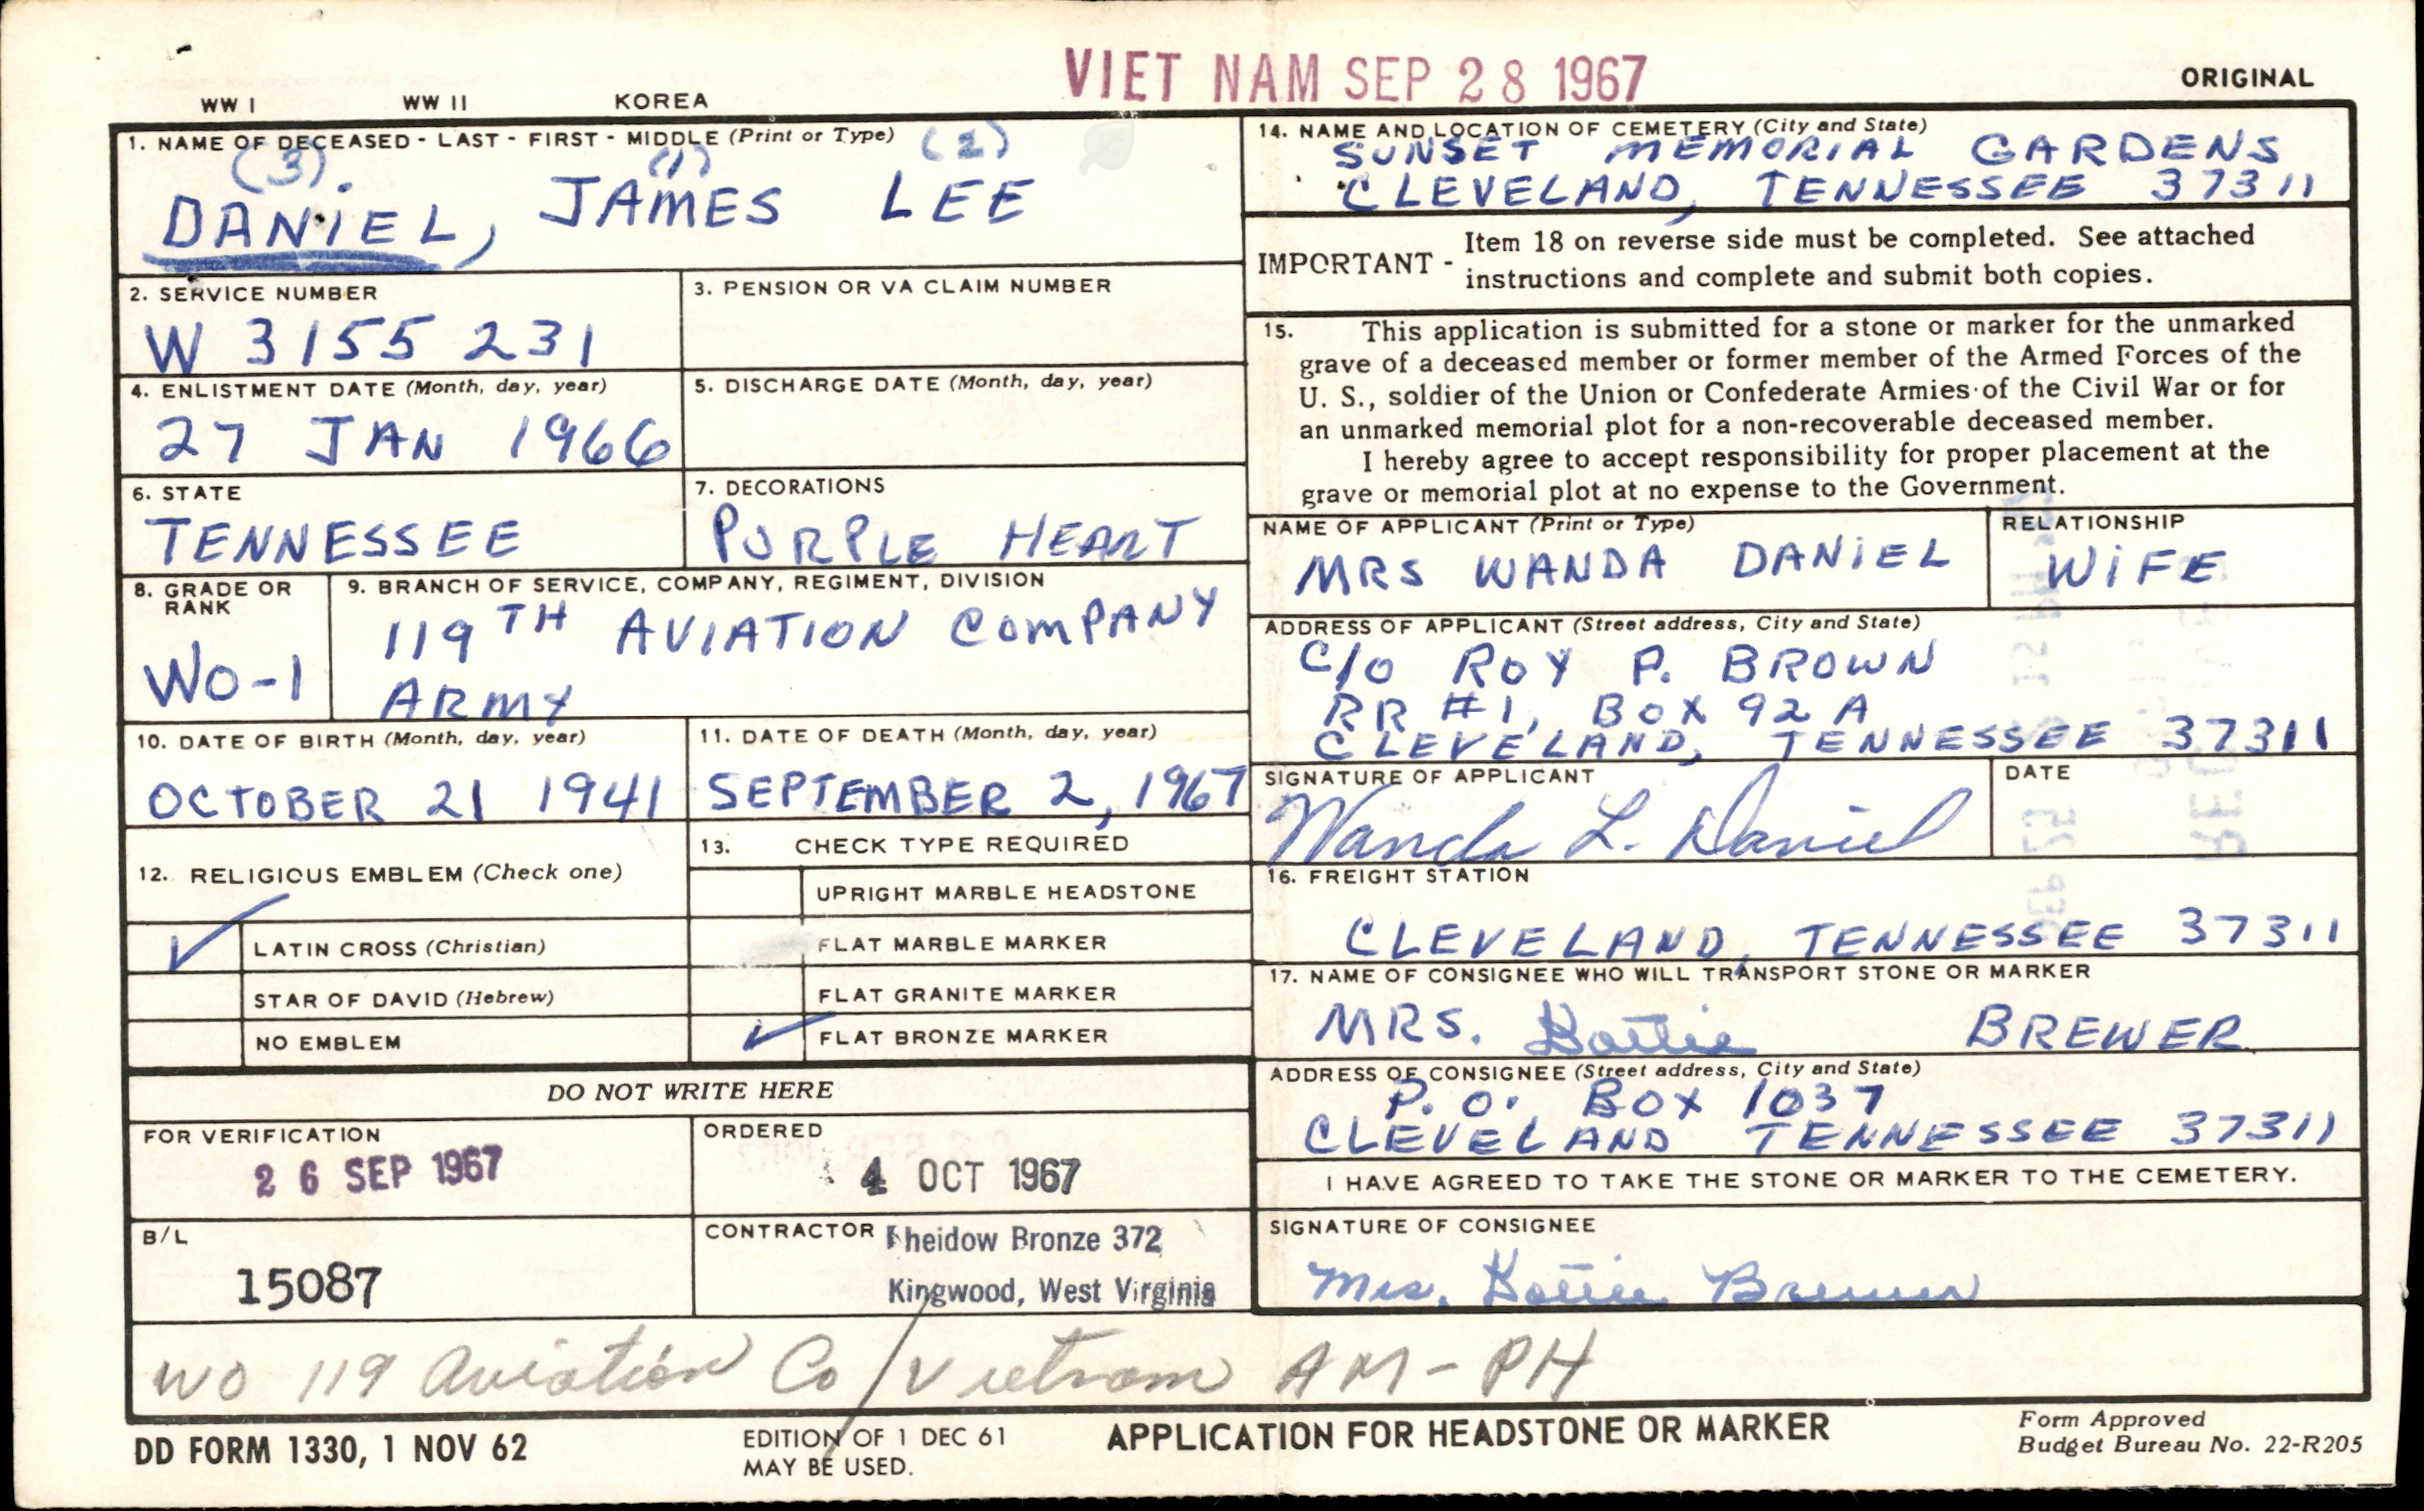 VIET NAM SEP 28 1967
ORIGINAL
WW I WW II KOREA
1. NAME OF DECEASED - LAST - FIRST - MIDDLE (Print or Type)
(3) (1) (2)
DANIEL, JAMES LEE
2. SERVICE NUMBER
W 3155 231
3. PENSION OR VA CLAIM NUMBER
4. ENLISTMENT DATE (Month, day, year)
27 JAN 1966
5. DISCHARGE DATE (Month, day, year)
6. STATE
TENNESSEE
7. DECORATIONS
PURPLE HEART
8. GRADE OR
RANK
WO-1
9. BRANCH OF SERVICE, COMPANY, REGIMENT, DIVISION
119TH AVIATION COMPANY
ARMY
10. DATE OF BIRTH (Month, day, year)
OCTOBER 21 1941
11. DATE OF DEATH (Month, day, year)
SEPTEMBER 2, 1967
12. RELIGIOUS EMBLEM (Check one)
LATIN CROSS (Christian)
STAR OF DAVID (Hebrew)
NO EMBLEM
13. CHECK TYPE REQUIRED
UPRIGHT MARBLE HEADSTONE
FLAT MARBLE MARKER
FLAT GRANITE MARKER
FLAT BRONZE MARKER
DO NOT WRITE HERE
FOR VERIFICATION
26 SEP 1967
ORDERED
4 OCT 1967
B/L
15087
CONTRACTOR
Sheidow Bronze 372
Kingwood, West Virginia
14. NAME AND LOCATION OF CEMETERY (City and State)
SUNSET MEMORIAL GARDENS
CLEVELAND, TENNESSEE 37311
IMPORTANT - Item 18 on reverse side must be completed. See attached
instructions and complete and submit both copies.
15. This application is submitted for a stone or marker for the unmarked
grave of a deceased member or former member of the Armed Forces of the
U. S., soldier of the Union or Confederate Armies of the Civil War or for
an unmarked memorial plot for a non-recoverable deceased member.
I hereby agree to accept responsibility for proper placement at the
grave or memorial plot at no expense to the Government.
NAME OF APPLICANT (Print or Type)
MRS WANDA DANIEL
RELATIONSHIP
WIFE
ADDRESS OF APPLICANT (Street address, City and State)
C/O ROY P. BROWN
RR #1, BOX 92 A
CLEVELAND, TENNESSEE 37311
SIGNATURE OF APPLICANT
Wanda L. Daniel
DATE
16. FREIGHT STATION
CLEVELAND, TENNESSEE 37311
17. NAME OF CONSIGNEE WHO WILL TRANSPORT STONE OR MARKER
MRS. BREWER
ADDRESS OF CONSIGNEE (Street address, City and State)
P.O. BOX 1037
CLEVELAND TENNESSEE 37311
I HAVE AGREED TO TAKE THE STONE OR MARKER TO THE CEMETERY.
SIGNATURE OF CONSIGNEE
Mrs. Brewer
WO 119 Aviation Co / Vietnam AM-PH
DD FORM 1330, 1 NOV 62
EDITION OF 1 DEC 61
MAY BE USED.
APPLICATION FOR HEADSTONE OR MARKER
Form Approved
Budget Bureau No. 22-R205